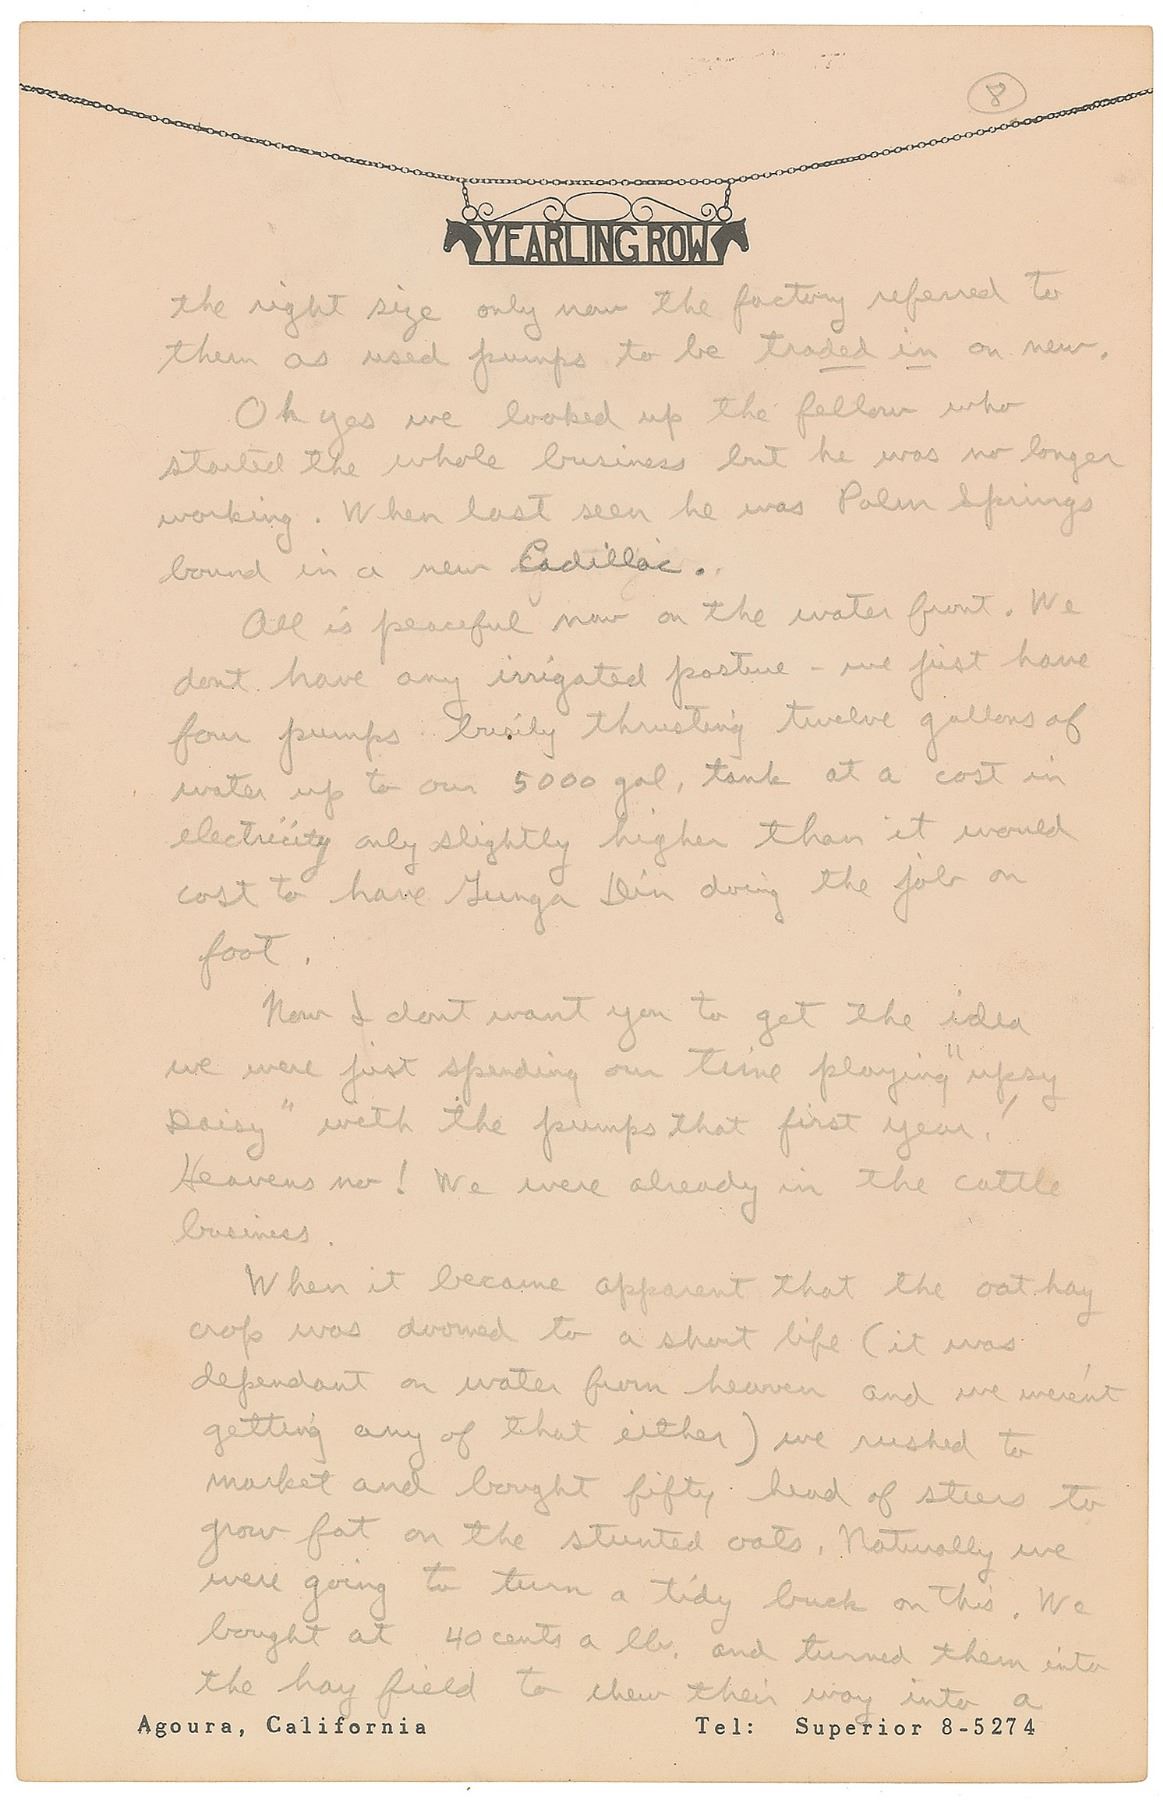 8
YEARLING ROW
the right size only now the factory referred to
them as used pumps to be traded in on new.
Oh yes we looked up the fellow who
started the whole business but he was no longer
working. When last seen he was Palm Springs
bound in a new Cadillac.
All is peaceful now on the water front. We
dont have any irrigated pasture - we just have
four pumps busily thrusting twelve gallons of
water up to our 5000 gal, tank at a cost in
electricity only slightly higher than it would
cost to have Gunga Din doing the job on
foot.
Now I dont want you to get the idea
we were just spending our time playing "upsy
Daisy" with the pumps that first year!
Heavens no! We were already in the cattle
business.
When it became apparent that the oat hay
crop was doomed to a short life (it was
dependant on water from heaven and we weren't
getting any of that either) we rushed to
market and bought fifty head of steers to
grow fat on the stunted oats. Naturally we
were going to turn a tidy buck on this. We
bought at 40 cents a lb. and turned them into
the hay field to chew their way into a
Agoura, California Tel: Superior 8-5274